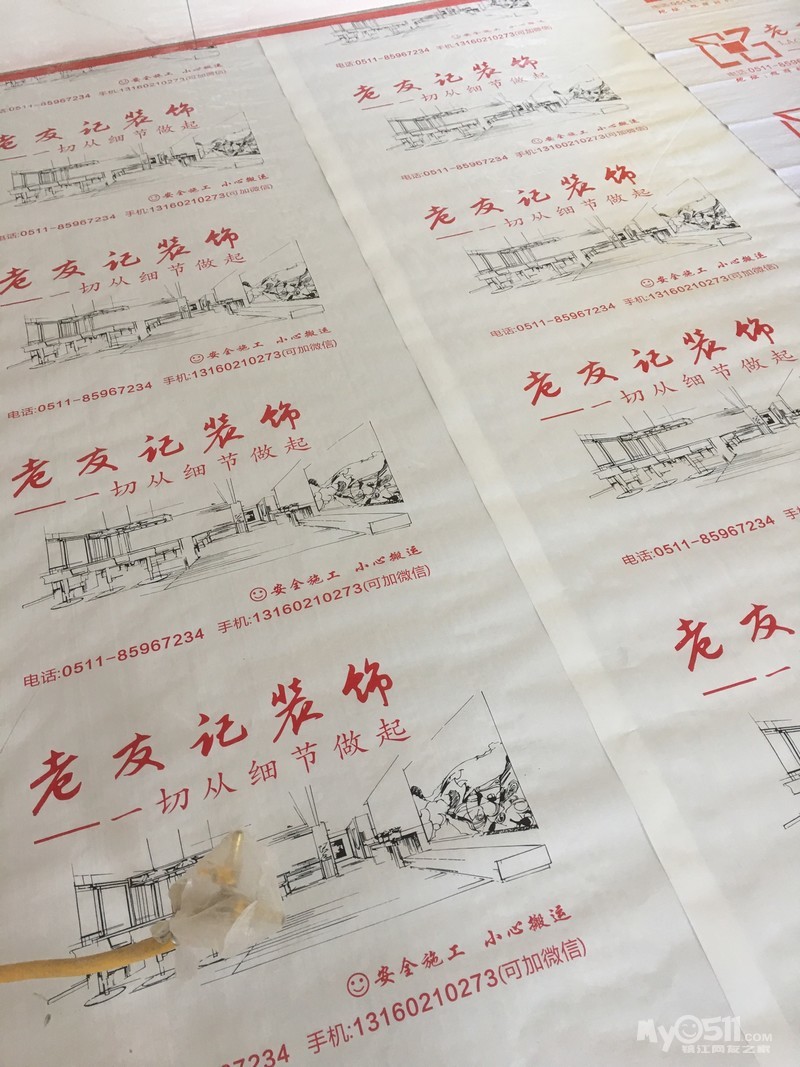 安全施工 小心搬运
电话:0511-85967234 手机:13160210273(可加微信)
老友记装饰
——一切从细节做起
安全施工 小心搬运
电话:0511-85967234 手机:13160210273(可加微信)
老友记装饰
——一切从细节做起
安全施工 小心搬运
电话:0511-85967234 手机:13160210273(可加微信)
老友记装饰
——一切从细节做起
安全施工 小心搬运
电话:0511-85967234 手机:13160210273(可加微信)
老友记装饰
——一切从细节做起
安全施工 小心搬运
手机:13160210273(可加微信)
7234
电话:0511-85967234 手机:13160210273(可加微信)
老友记装饰
——一切从细节做起
安全施工 小心搬运
电话:0511-85967234 手机:13160210273(可加微信)
老友记装饰
——一切从细节做起
安全施工 小心搬运
电话:0511-85967234 手机:13160210273(可加微信)
老友记装饰
——一切从细节做起
电话:0511-85967234 手
老友
——一
老
电话:0511-859
My0511.COM
镇江网友之家